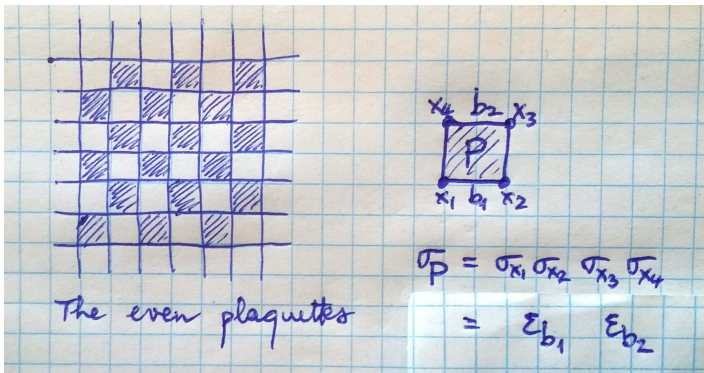 The even plaquettes
x₄ b₂ x₃
P
x₁ b₁ x₂
σ_P = σ_{x₁} σ_{x₂} σ_{x₃} σ_{x₄}
= ε_{b₁} ε_{b₂}